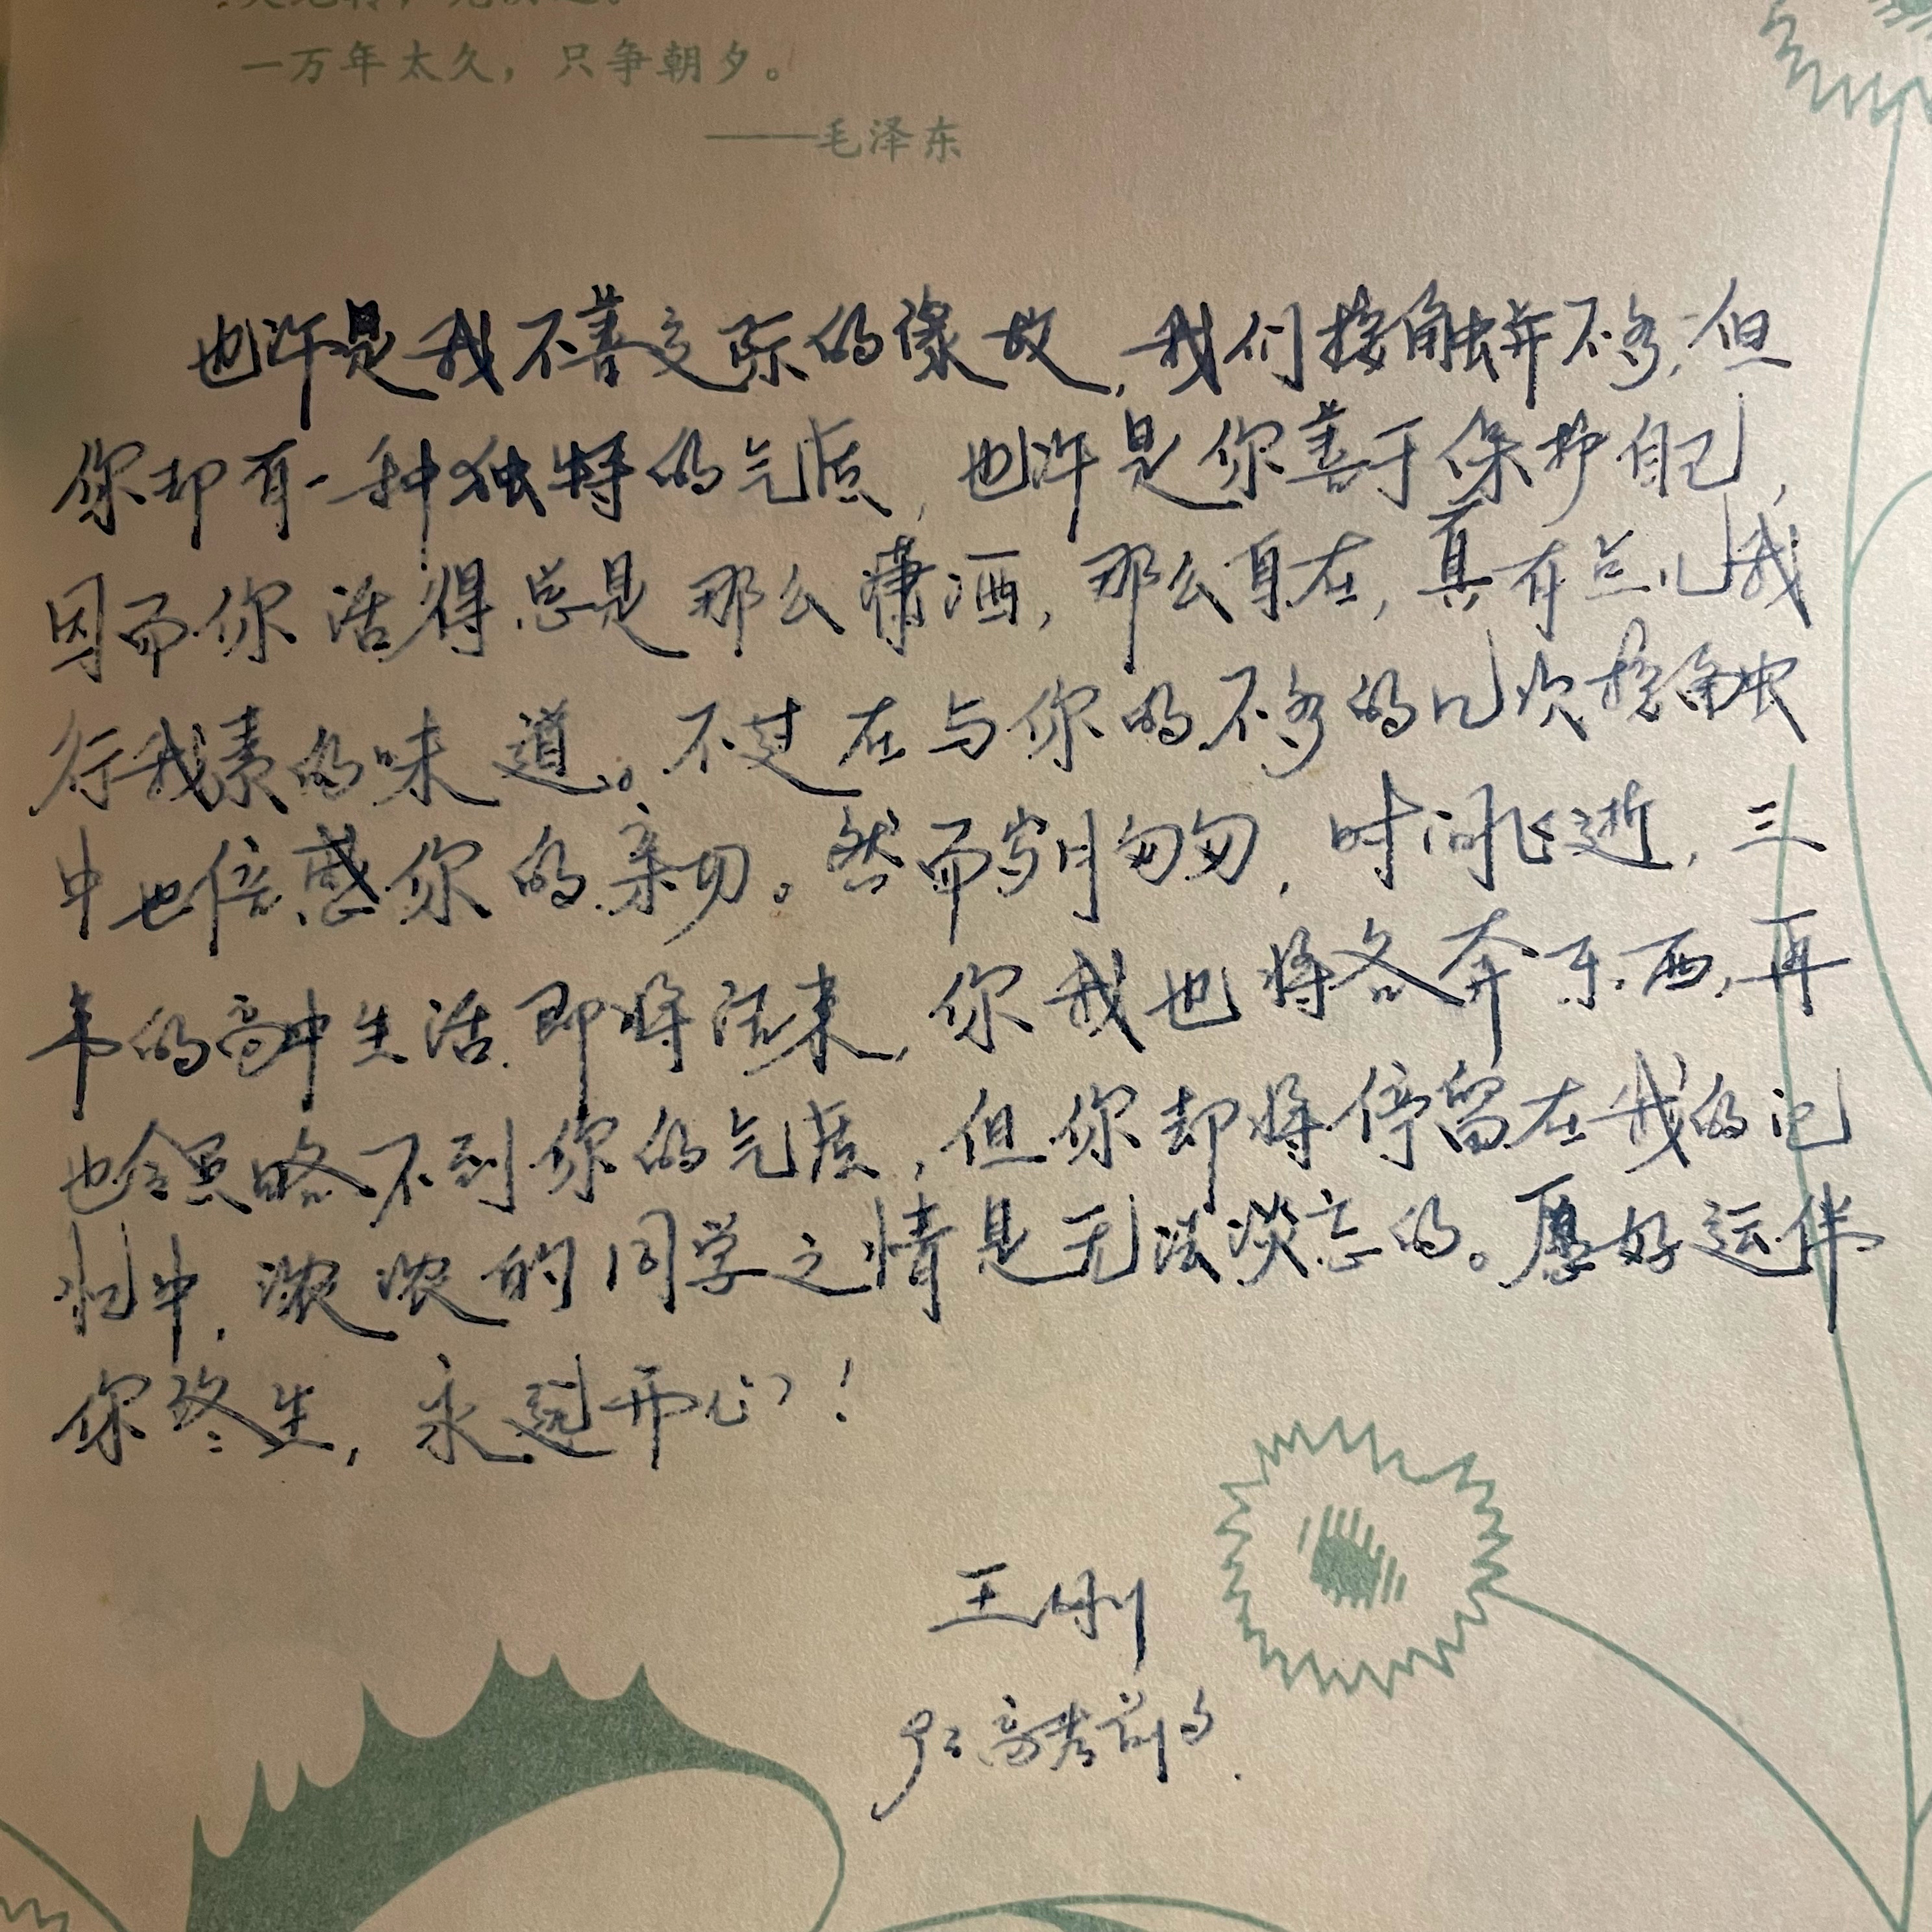 一万年太久，只争朝夕。
——毛泽东
也许是我不善交际的缘故，我们接触并不多，但
你却有一种独特的气质，也许是你善于保护自己，
因而你活得总是那么潇洒，那么自在，真有点儿我
行我素的味道。不过在与你的不多的几次接触
中也倍感你的亲切。然而岁月匆匆，时间飞逝，三
年的高中生活即将结束，你我也将各奔东西，再
也领略不到你的气质，但你却将停留在我的记
忆中，浓浓的同学之情是无法淡忘的。愿好运伴
你终生，永远开心！
王刚
高考前夕.